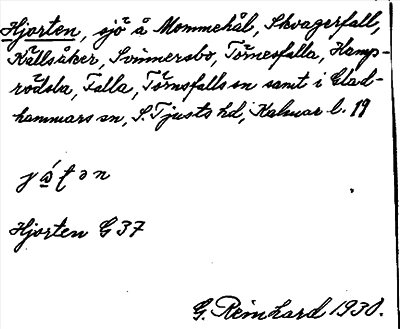 Hjorten, sjö å Mommehål, Skvagerfall,
Källsåker, Svinnersbo, Törnesfalla, Hamp-
rödsla, Falla, Törnsfalls sn samt i Glad-
hammars sn, S. Tjusts hd, Kalmar l. 19
Hjorten G 37
G. Reinhard 1930.